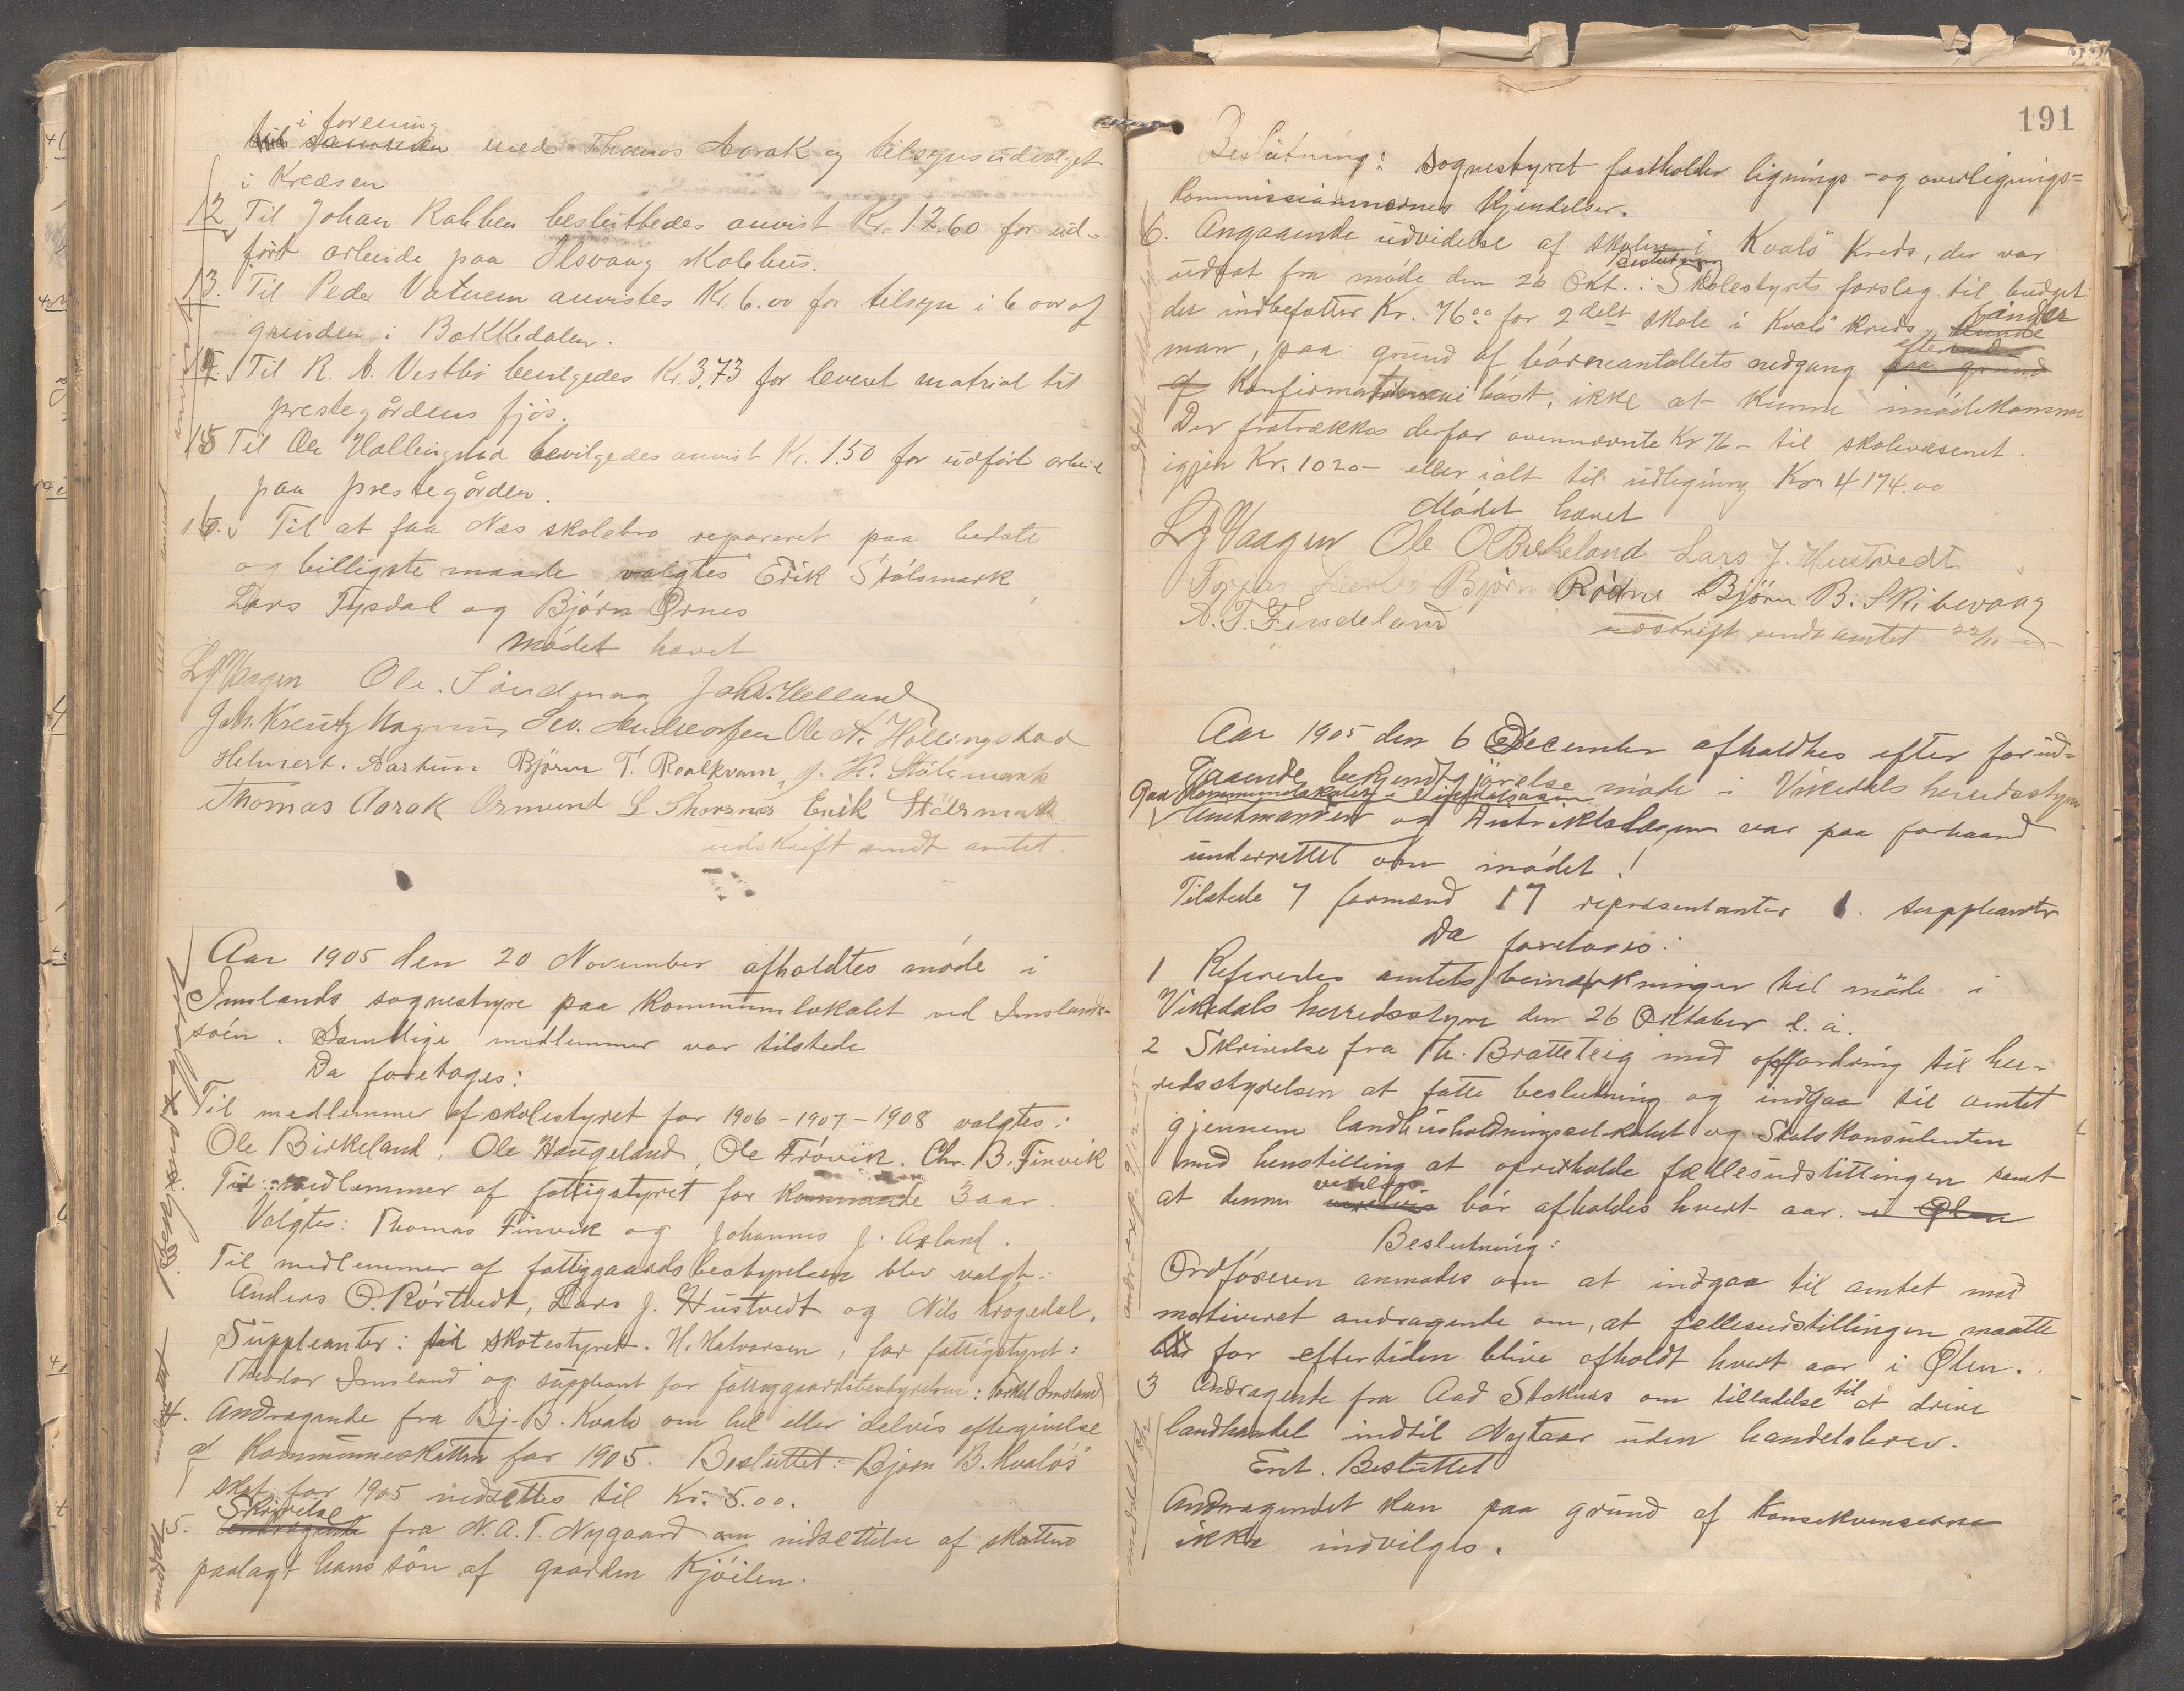 i forening
med Thomas Aarak og tilsynsudvalget
i Kredsen
12 Til Johan Rabben besluttedes anvist Kr. 12.60 for ud-
ført arbeide paa Ilsvaag skolehus.
13. Til Peder Vatnem anvistes Kr. 6.00 for tilsyn i 6 aar af
grinden i Bakkedalen.
14. Til R. A. Vestbø bevilgedes Kr. 3,73 for leveret matrial til
prestegårdens fjøs.
15 Til Ole Hallingstad bevilgedes anvist Kr. 1.50 for udført arbeide
paa prestegården.
16. Til at faa Nes skolebro repareret paa bedste
og billigste maade valgtes Erik Stølsmark,
Lars Tysdal og Bjørn Ørnes
Mødet hævet
LJVaagen Ole Johs. Helland
Joh. Kreutz Magnus Sev. Ole A. Hallingstad
Helmert. Aartun Bjørn T. Roalkvam, J. H. Stølsmark
Thomas Aarak Osmund L Thorsnes Erik Stølsmark
udskrift sendt amtet.
191
Aar 1905 den 20 November afholdtes møde i
Imslands sognestyre paa Kommunelokalet ved Imslands-
søen. Samtlige medlemmer var tilstede
Da foretoges:
Til medlemmer af skolestyret for 1906-1907-1908 valgtes:
Ole Birkeland, Ole Haugeland, Ole Frøvik. Chr. B. Finvik
Til medlemmer af fattigstyret for kommande 3 aar
Valgtes: Thomas Finvik og Johannes J. Axland.
Til medlemmer af fattiggaardsbestyrelsen blev valgt:
Anders O. Rørtvedt, Lars J. Hustvedt og Nils Krogedal.
Suppleanter: til skolestyret. H. Halvorsen, for fattigstyret:
Theodor Imsland og suppleant for fattiggaardsbestyrelsen: Torkel Imsland
4. Andragende fra Bj. B. Kvalø om hel eller delvis eftergivelse
af Kommuneskatten for 1905. Besluttet: Bjørn B. Kvaløs
skat for 1905 nedsættes til Kr. 5.00.
Skrivelse
5. andragende fra N. A. T. Nygaard om nedsættelse af skatten
paalagt hans søn af gaarden Kjøilen.
Beslutning: Sognestyret fastholder lignings- og overlignings-
kommissionernes Kjendelser.
6. Angaaende udvidelse af skolen i Kvalø Kreds, der var
udsat fra møde den 26 Okt.: Beslutning Skolestyrets forslag til budget
der indbefatter Kr. 76.00 for 2delt skole i Kvalø Kreds, finder
man, paa grund af børneantallets nedgang efter
konfirmationen i høst, ikke at kunne imødekomme
Der fratrækkes derfor ovennævnte Kr 76- til skolevæsenet.
igjen Kr. 1020- eller ialt til udligning Kr 4174.00
Mødet hævet
LJVaagen Ole O Birkeland Lars J. Hustvedt
Bjørn Rødne Bjørn B. Skibevaag
A. T. Findeland
udskrift sendt amtet 22/11
Aar 1905 den 6 December afholdtes efter forud-
gaaende bekjendtgjørelse møde i Vikedals herredsstyre
paa Kommunelokalet i
Amtmanden og Distriktslægen var paa forhaand
underrettet om mødet!
Tilstede 7 formænd 17 repræsentanter 1. suppleanter
Da foretoges:
1 Refereredes amtets bemærkninger til møde i
Vikedals herredsstyre den 26 Oktober d. å.
2 Skrivelse fra Th. Bratteteig med opfordring til her-
redsstyrelsen at fatte beslutning og indgaa til amtet
gjennem landhusholdningsselskabet og Statskonsulenten
med henstilling at opretholde fællesudstillingen samt
at denne bør afholdes hvert aar. i Ølen
Beslutning:
Ordføreren anmodes om at indgaa til amtet med
motiveret andragende om, at fellesudstillingen maatte
for eftertiden blive afholdt hvert aar i Ølen.
3 Andragende fra Aad Stoknes om tilladelse til at drive
landhandel indtil Nytaar uden handelsbrev.
Ent. Besluttet
Andragendet kan paa grund af Konsekvenserne
ikke indvilges.